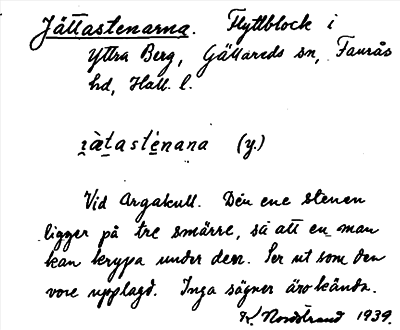 Jättastenarna. Flyttblock i
Yttra Berg, Gällareds sn, Faurås
hd, Hall. l.
i̯àtastènana (y.)
Vid Argakull. Den ene stenen
ligger på tre smärre, så att en man
kan krypa under den. Ser ut som den
vore upplagd. Inga sägner äro kända.
Nordstrand 1939.